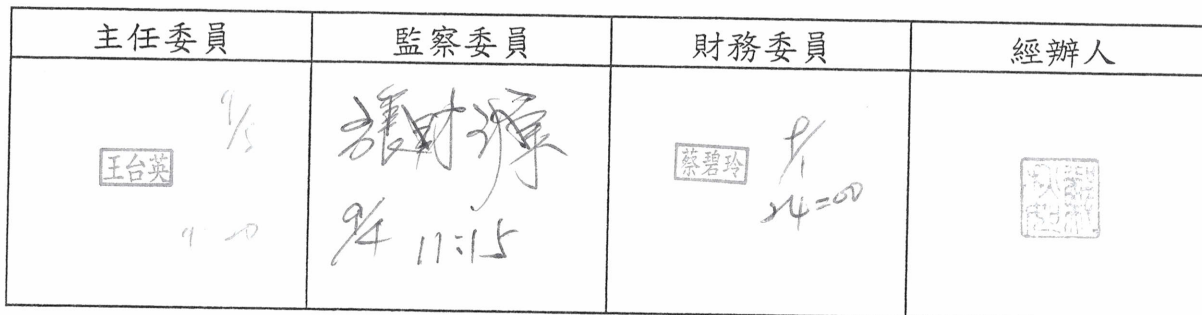 主任委員
監察委員
財務委員
經辦人
9/5
王台英
張財源
9/4 11:15
蔡碧玲
9/1
24=00